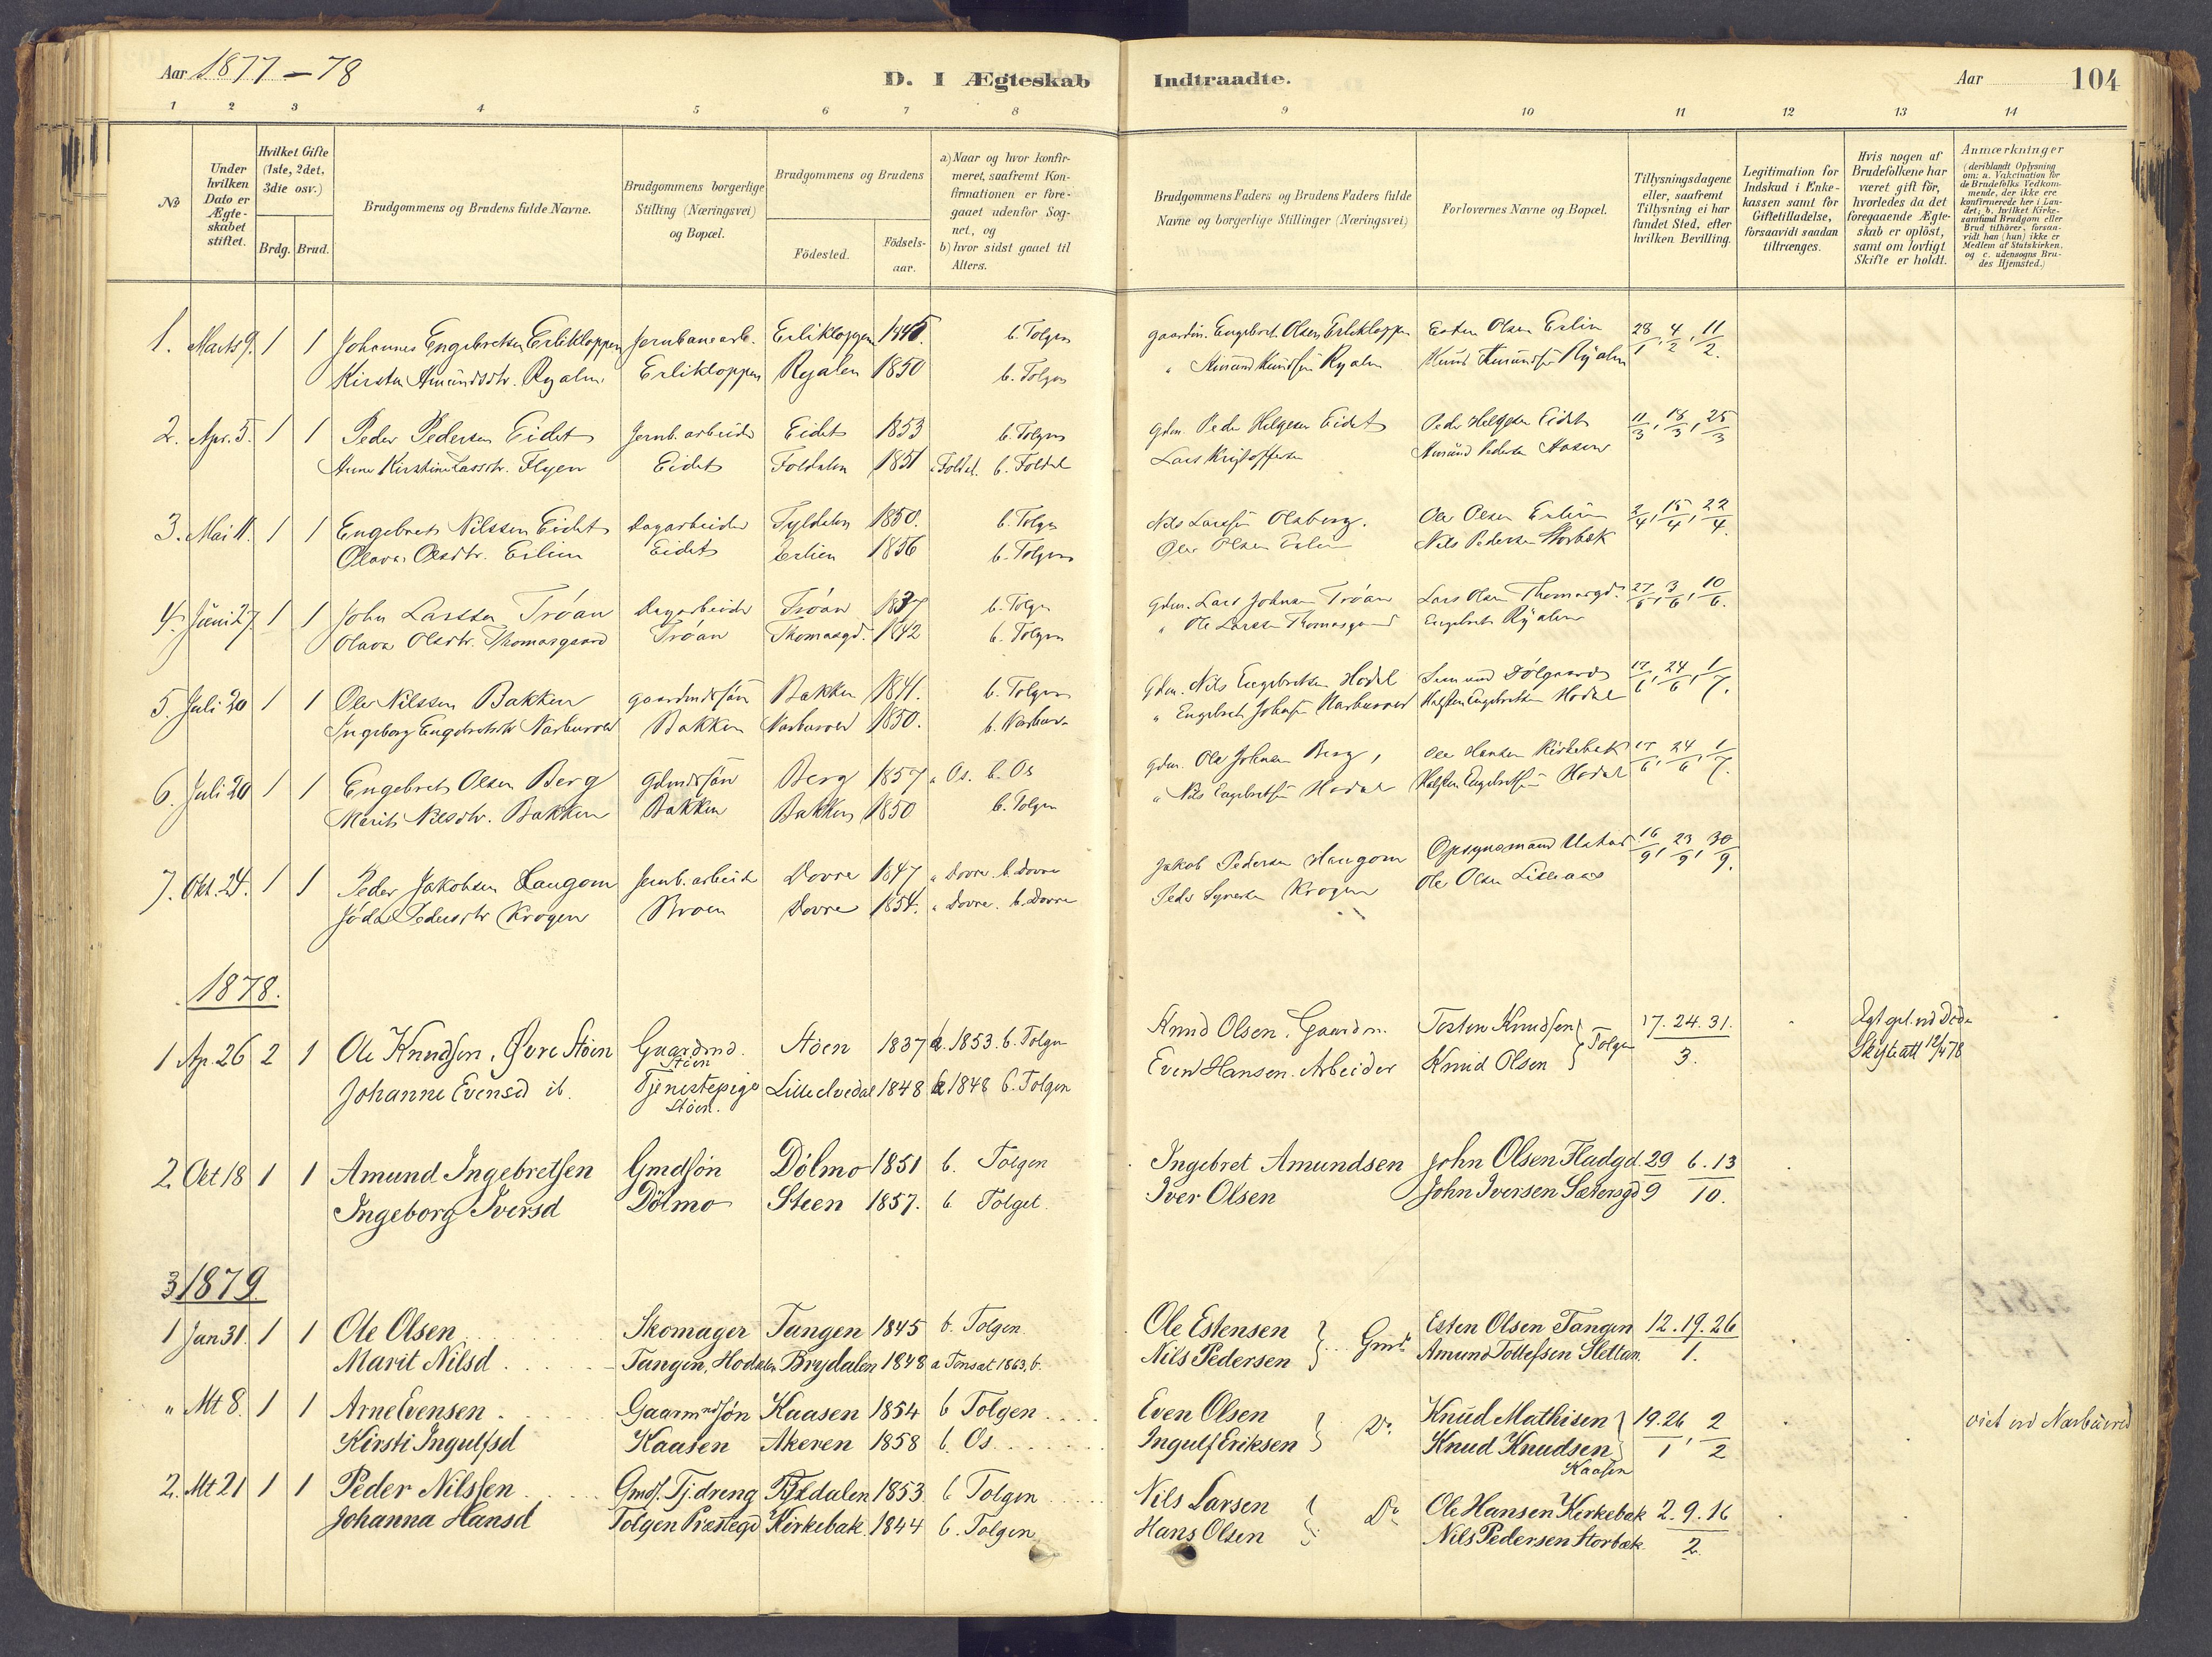 Aar 1877-78
D. I Ægteskab Indtraadte.
Aar 104
1 2 3 4 5 6 7 8 9 10 11 12 13 14
No
Under hvilken Dato er Ægte-skabet stiftet.
Hvilket Gifte (1ste, 2det, 3die osv.)
Brdg. Brud.
Brudgommens og Brudens fulde Navne.
Brudgommens borgerlige Stilling (Næringsvei) og Bopæl.
Brudgommens og Brudens
Fødested.
Fødsels-aar.
a) Naar og hvor konfir-meret, saafremt Kon-firmationen er fore-gaaet udenfor Sog-net, og
b) hvor sidst gaaet til Alters.
Brudgommens Faders og Brudens Faders fulde Navne og borgerlige Stillinger (Næringsvei)
Forlovernes Navne og Bopæl.
Tillysningsdagene eller, saafremt Tillysning ei har fundet Sted, efter hvilken Bevilling.
Legitimation for Indskud i Enke-kassen samt for Giftetilladelse, forsaavidt saadan tiltrænges.
Hvis nogen af Brudefolkene har været gift før, hvorledes da det foregaaende Ægte-skab er opløst, samt om lovligt Skifte er holdt.
Anmærkninger (deriblandt Oplysning om: a. Vakcination for de Brudefolks Vedkom-mende, der ikke ere konfirmerede her i Lan-det; b. hvilket Kirke-samfund Brudgom eller Brud tilhører, forsaa-vidt han (hun) ikke er Medlem af Statskirken, og c. udensogns Bru-des Hjemsted.)
1. Marts 9. 1 1 Johannes Engebretsen Erlikloppen Jernbanearb. Erlikloppen b. Tolgen gaardm. Engebret Olsen Erlikloppen Esten Olsen Erlien 28/1, 4/2, 11/2.
Kirsten Amundsdtr. Ryalen Erlikloppen Ryalen 1850 b. Tolgen " Amund Knudsen Ryalen Knud Amundsen Ryalen
2. Apr. 5. 1 1 Peder Pedersen Eidet Jernb. arbeider Eidet 1853 b. Tolgen gdm. Peder Helgesen Eidet Peder Helgesen Eidet 11/3, 18/3, 25/3
Anne Kirstine Larsdtr. Flyen Eidet Foldalen 1851 a Foldal. b. Foldal Lars Kristoffersen Amund Pedersen Aasen
3. Mai 11. 1 1 Engebret Nilssen Eidet Dagarbeider Tyldalen 1850. b. Tolgen Nils Larssen Olsberg. Ole Olsen Erlien 2/4, 15/4, 22/4.
Olava Olsdtr. Erlien Eidet Erlien 1856 b. Tolgen Ole Olsen Erlien Nils Pedersen Storbæk
4. Juni 27. 1 1 John Larssen Trøan Dagarbeider Trøan 1837 b. Tolgen gdm. Lars Johnsen Trøan Lars Olsen Thomasgd. 27/5, 3/6, 10/6.
Olava Olsdtr. Thomasgaard Trøan Thomasgd. 1842 b. Tolgen " Ole Larssen Thomasgaard Engebret Ryalen
5. Juli 20 1 1 Ole Nilssen Bakken gaardmdssøn Bakken 1841. b. Tolgen Gdm. Nils Engebretsen Hodal Dølgaard 17/6, 24/6, 1/7.
Ingeborg Engebretsdtr Narbuvold Bakken Narbuvold 1850. b. Narbuv. " Engebret Johnsen Narbuvold Halsten Engebretsen Hodal
6. Juli 20 1 1 Engebret Olsen Berg Gdmdssøn Berg 1857 a Os. b. Os gdm. Ole Johnsen Berg, Ole Hansen Kirkebæk 17/6, 24/6, 1/7.
Marit Nilsdtr. Bakken Bakken Bakken 1850 b. Tolgen " Nils Engebretsen Hodal Halsten Engebretsen Hodal
7. Okt. 24. 1 1 Peder Jakobsen Haugom Jernb. arbeider Dovre 1847 a Dovre. b. Dovre Jakob Pedersen Haugom Opsynsmand 16/9, 23/9, 30/9.
Jøda Pedersdtr Krogen Broen Dovre 1854. a Dovre. b. Dovre Peder Syversen Krogen Ole Olsen Lilleaas
1878.
1 Ap. 26 2 1 Ole Knudsen, Øvre Støen Gaardmd. Støen Støen 1837 a. 1853. b. Tolgen Knud Olsen, Gaardm. Torsten Knudsen } Tolgen 17. 24. 31. Egt. opl. ved Død
Johanne Evensd ib. Tjenestepige Støen. Lilleelvedal 1848 a 1848 b. Tolgen Even Hansen. Arbeider Knud Olsen 3. Skifteatt 12/4 78
2. Oct 18 1 1 Amund Ingebretsen Gmdsøn Dølmo 1851 b. Tolgen Ingebret Amundsen John Olsen Fladgd. 29/9 6. 13/10.
Ingeborg Iversd Dølmo Steen 1857. b Tolget. Iver Olsen John Iversen Sætersgd
3 1879.
1 Jan 31. 1 1 Ole Olsen Skomager Tangen 1845 b. Tolgen. Ole Estensen } Gmd. Esten Olsen Tangen 12. 19. 26
Marit Nilsd Tangen, Hodalen Brydalen 1848 a Tønset 1863, b. Nils Pedersen Amund Tollefsen Sletten. 1.
" Mt 8. 1 1 Arne Evensen Gaarmndsøn Kaasen 1854 b Tolgen Even Olsen } Do. Knud Mathisen } 19. 26/1, 2/2 viet ved Narbuvold
Kirsti Ingulfsd Kaasen Akeren 1858 b. Os. Ingulf Eriksen Knud Knudsen
Kaasen
2. Mt 21 1 1 Peder Nilssen Gmds. Tj.dreng Tyldalen 1853 b Tolgen Nils Larsen } Do Ole Hansen Kirkebæk 2. 9. 16
Johanna Hansd Tolgen Præstegd Kirkebak. 1844 b. Tolgen Hans Olsen Nils Pedersen Storbæk. 2.